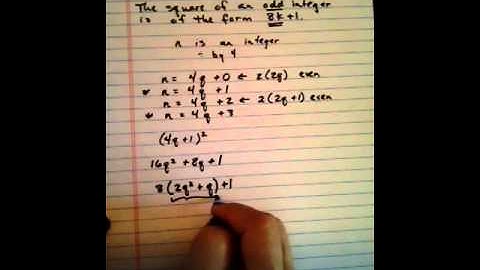 The square of an odd integer
is of the form 8k+1.
n is an integer
÷ by 4
n = 4q + 0 ← 2(2q) even
* n = 4q + 1
n = 4q + 2 ← 2(2q+1) even
* n = 4q + 3
(4q+1)²
16q² + 8q + 1
8(2q²+q)+1